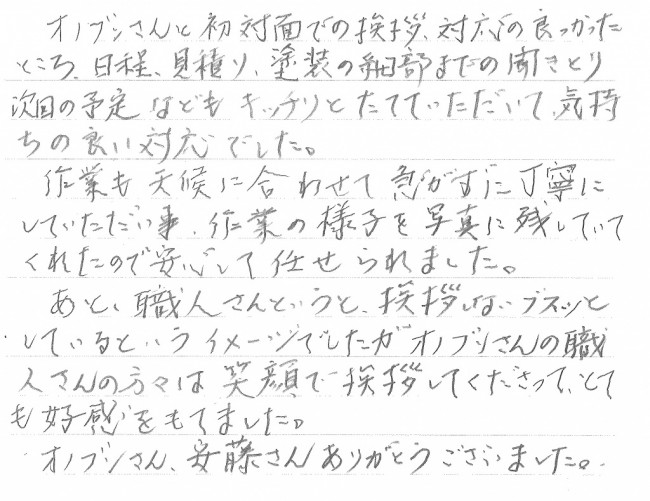 オノブンさんと初対面での挨拶、対応の良かった
ところ、日程、見積り、塗装の細部までの聞きとり
次回の予定などもキッチリとたてていただいて、気持
ちの良い対応でした。
作業も天候に合わせて急がずに丁寧に
していただい事、作業の様子を写真に残していて
くれたので安心して任せられました。
あと、職人さんというと、挨拶しないブスッと
しているというイメージでしたがオノブンさんの職
人さんの方々は笑顔で挨拶してくださって、とて
も好感をもてました。
オノブンさん、安藤さんありがとうございました。